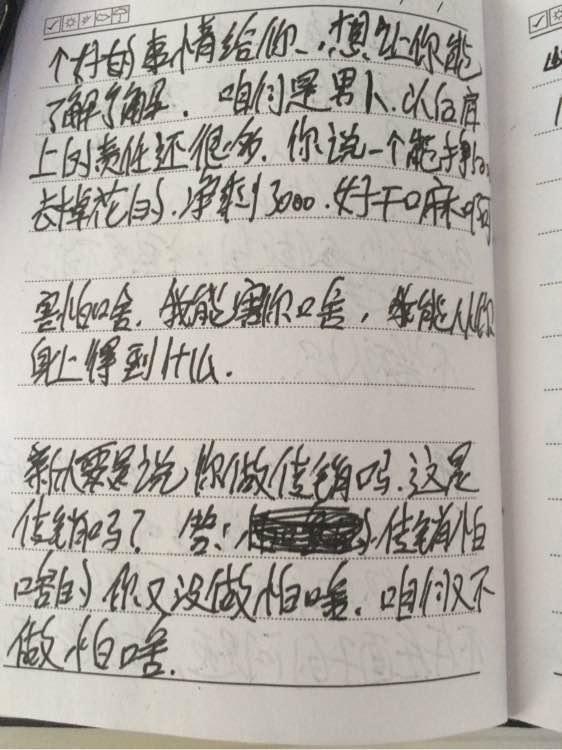 个好的事情给你、想让你能
了解了解．咱们是男人．以后肩
上的责任还很多．你说一个能手
去掉花的．净剩3000．好干口麻啊
害怕啥．我能害你啥，我能从你
身上得到什么．
新人要是说你做传销吗．这是
传销吗？传销怕
啥的你又没做怕啥．咱们又不
做怕啥．